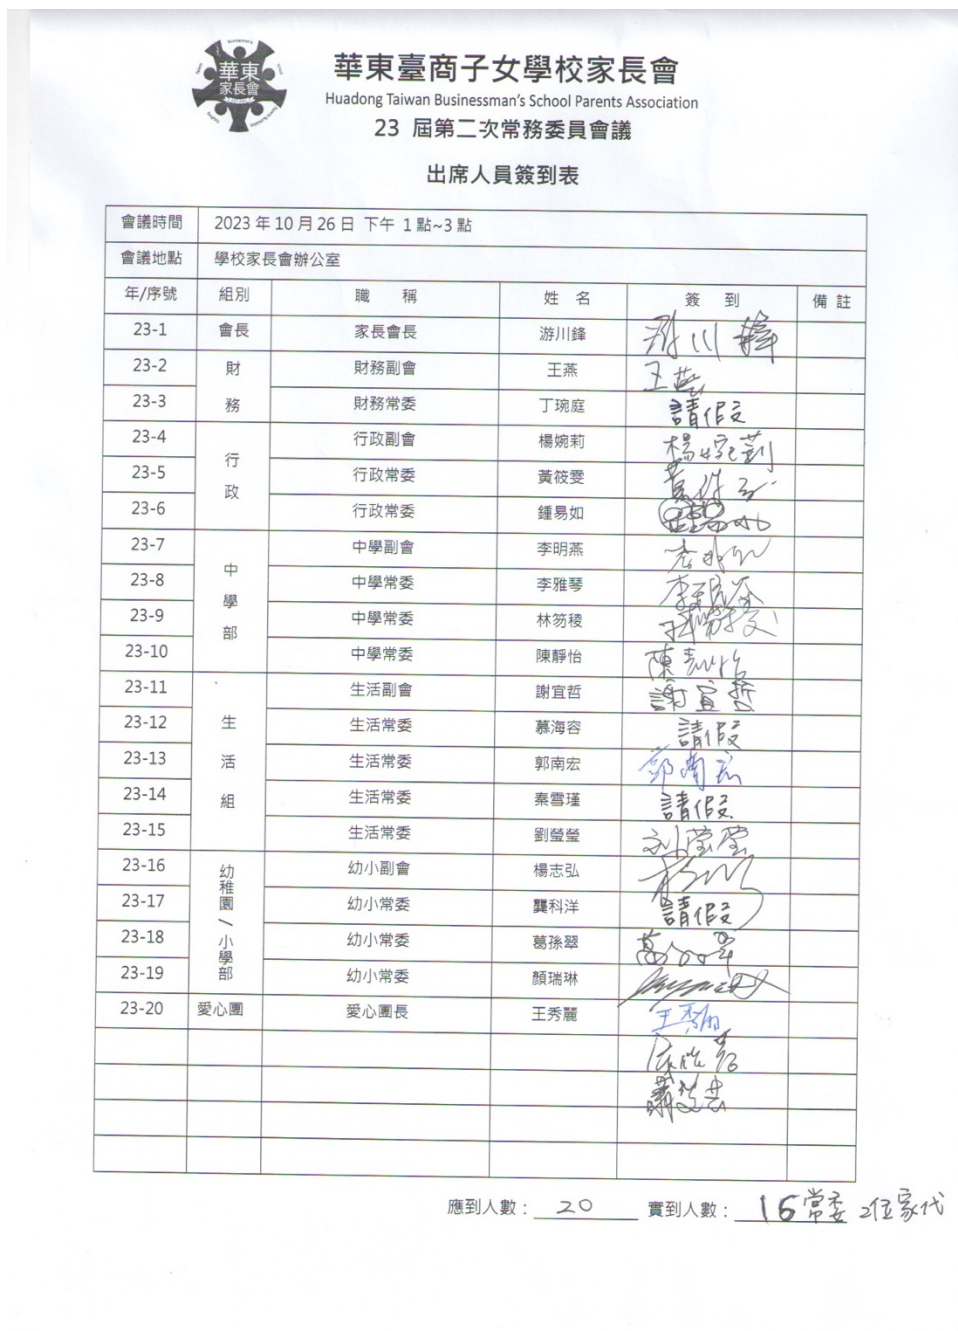 華東
家長會
華東臺商子女學校家長會
Huadong Taiwan Businessman's School Parents Association
23 屆第二次常務委員會議
出席人員簽到表
會議時間 2023 年 10 月 26 日 下午 1 點~3 點
會議地點 學校家長會辦公室
年/序號 組別 職 稱 姓 名 簽 到 備 註
23-1 會長 家長會長 游川鋒 游川鋒
23-2 財務 財務副會 王燕 王燕
23-3 財務常委 丁琬庭 請假
23-4 行政 行政副會 楊婉莉 楊婉莉
23-5 行政常委 黃筱雯 黃筱雯
23-6 行政常委 鍾易如
23-7 中學部 中學副會 李明燕 李明燕
23-8 中學常委 李雅琴 李雅琴
23-9 中學常委 林笏稜 林笏稜
23-10 中學常委 陳靜怡 陳靜怡
23-11 生活組 生活副會 謝宜哲 謝宜哲
23-12 生活常委 慕海容 請假
23-13 生活常委 郭南宏 郭南宏
23-14 生活常委 秦雪瑾 請假
23-15 生活常委 劉瑩瑩 刘莹莹
23-16 幼稚園/小學部 幼小副會 楊志弘
23-17 幼小常委 龔科洋 請假
23-18 幼小常委 葛孫翠
23-19 幼小常委 顏瑞琳
23-20 愛心團 愛心團長 王秀麗 王秀丽
應到人數：20 實到人數：16常委 2位家代